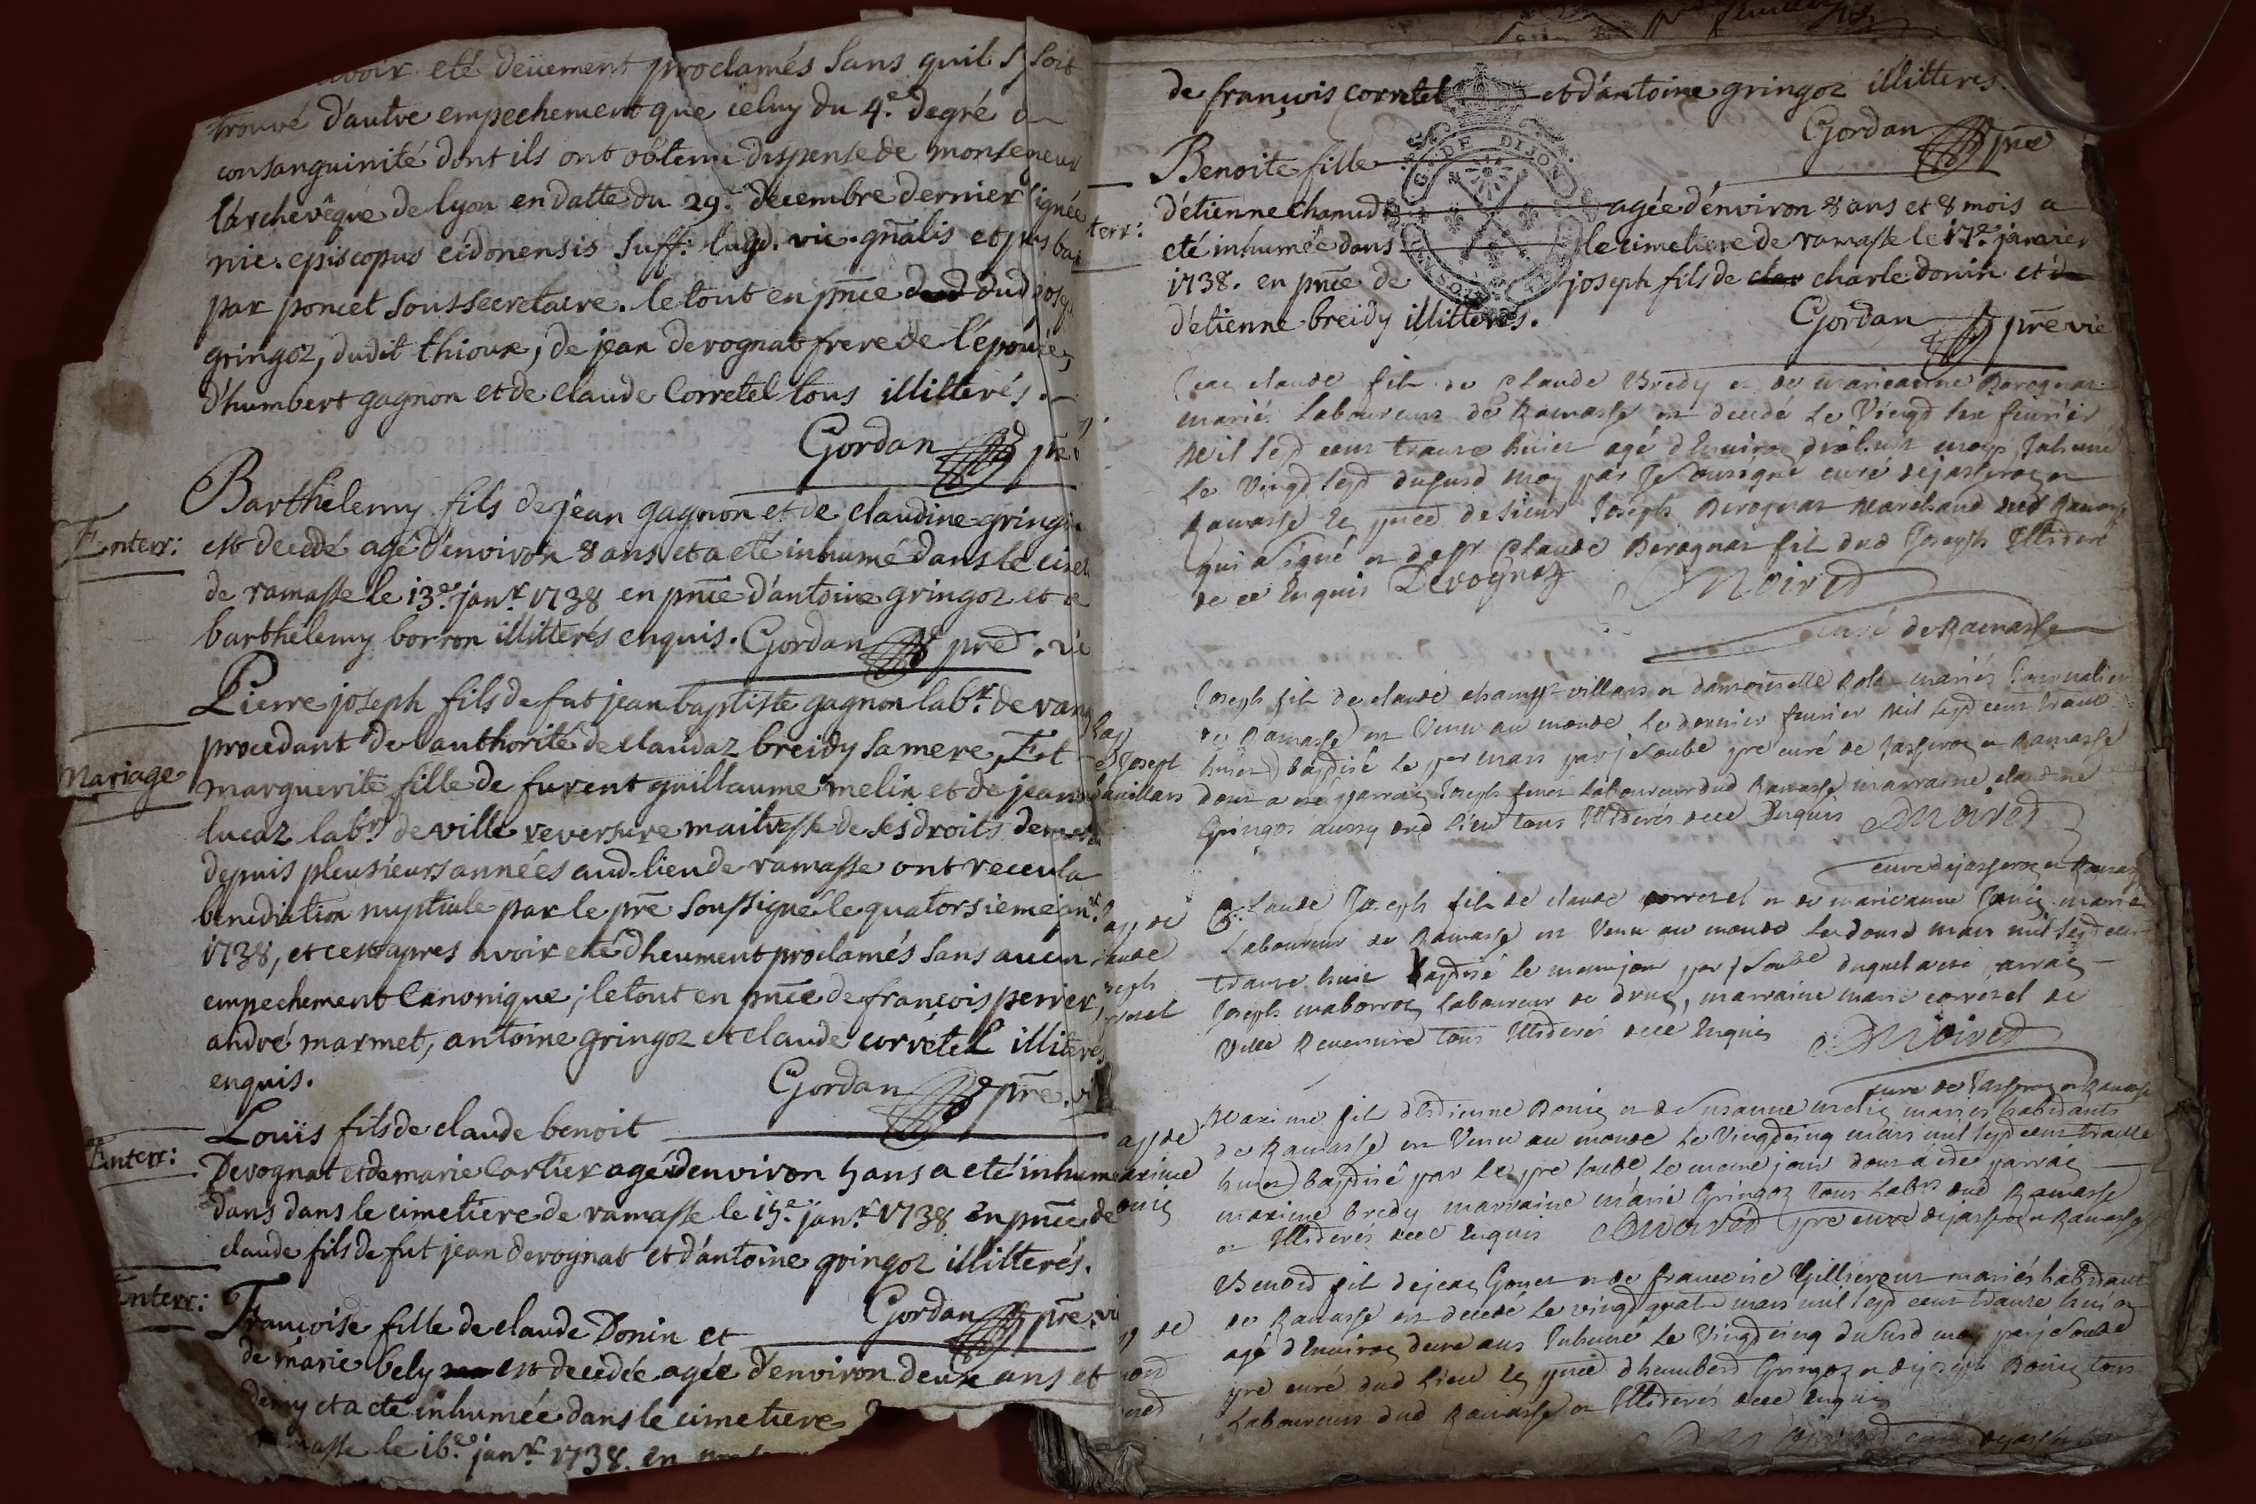 avoir eté deüement proclamés sans quil s'y soit
trouvé d'autre empechement que celuy du 4.e degré
consanguinité dont ils ont obtenu dispense de monseneur
l'archevêque de lyon en datte du 29.e decembre dernier signée
nic. episcopus eidonensis suff. lugd. vic. gñalis et plus bas
par poncet soussecretaire. le tout en pñce dud joseph
gringoz, dudit thioux, de jean devognat frere de l'épouse,
d'humbert gagnon et de claude Corretel tous illitterés.
Gordan pre
Enterr:
Barthelemy fils de jean gagnon et de claudine gringoz
est decedé agé d'environ 8 ans et a eté inhumé dans le cimet
de ramasse le 13.e janr. 1738 en pñce d'antoine gringoz et de
barthelemy borron illitterés enquis. Gordan pre. vi
Mariage
Pierre joseph fils de fut jean baptiste gagnon labr. de
procedant de l'authorité de claudaz breidy sa mere, Et
marguerite fille de furent guillaume melin et de jeanne
lucaz labrs de ville reversure maitresse de ses droits
depuis plusieurs années aud. lieu de ramasse ont receu la
benediction nuptiale par le pre soussigné le quatorsieme janr.
1738, et c'est apres avoir eté dheument proclamés sans aucun
empechement Canonique; le tout en pñce de françois perrier,
andré marmet, antoine gringoz et claude corretel illiterés
enquis.
Gordan pre. vi
Enterr:
Louis fils de claude benoit
Devognat et de marie Cartier agé d'environ 5 ans a eté inhumé
dans dans le cimetiere de ramasse le 15.e janr. 1738 en pñce de
claude fils de fut jean devognat et d'antoine gringoz illitterés.
Gordan pre. vi
Enterr:
Françoise fille de claude Donin et
de marie bely est decedée agée d'environ deux ans et
demy et a eté inhumée dans le cimetiere
masse le 16.e janr. 1738. en
de françois corretel et d'antoine gringoz illitteres.
Gordan pre
terr:
Benoite fille
d'étienne Chanud agée d'environ 8 ans et 8 mois a
eté inhumée dans le cimetiere de ramasse le 17.e janvier
1738. en pñce de joseph fils de charle donin et
d'étienne breidy illitterés.
Gordan pre vic
G. DE DIJON
Jean claude fils de Claude Bredy et de marieanne Devognat
mariés Laboureurs de Ramasse est decedé le Vingt six fevrier
mil sept cent trante huict agé d'environ dixhuit moys Inhumé
le Vingt sept dusurd moy par Je soussigné curé de jasseron et
Ramasse en pñce de sieur Joseph Devognat Marchand dud Ramasse
qui a signé et de sr Claude Devognat fils dud Joseph Illideré
de ce Enquis Devognat Moiret
curé de Ramasse
Joseph
d'auvillars
Joseph fils de claude champt villars et damoiselle mariés
de Ramasse est Venu au monde le dernier fevrier mil sept cent trante
huict Baptisé le per mars par je soubs pre curé de Jasseron et Ramasse
dont a eté parrain Joseph Laboureur dud Ramasse marraine claudine
Gringoz aussy dud lieu tous Illiderés de ce Enquis Moiret
curé de jasseron et Ramasse
bap de
claude
joseph
corretel
Claude Joseph fils de claude corretel et de marieanne mariés
Laboureur de Ramasse est Venu au monde le douse mars mil sept cent
trante huict baptisé le meme jour par je soubs duquel a eté parrain
Joseph maborron Laboureur de drun, marraine marie corretel de
Ville Reversure tous Illiderés de ce Enquis Moiret
curé de Jasseron et Ramasse
bap de
maxime
bonin
Maxime fils d'Estienne Bonin et de Susanne melin mariés habitants
de Ramasse est Venu au monde le Vingtcinq mars mil sept cent trante
huict baptisé par le pre soubs le meme jour dont a eté parrain
maxime bredy marraine marie Gringoz tous labrs dud Ramasse
et Illiderés de ce Enquis Moiret pre curé de jasseron et Ramasse
Benoid fils de jean Gonet et de francoise mariés habitants
de Ramasse est decedé le vingt quatre mars mil sept cent trante huict
agé d'environ deux ans Inhumé le Vingtcinq dusurd moy par je soubs
pre curé dud lieu en pñce d'humberd Gringoz et de joseph Bonin tous
Laboureurs dud Ramasse et Illiderés de ce Enquis